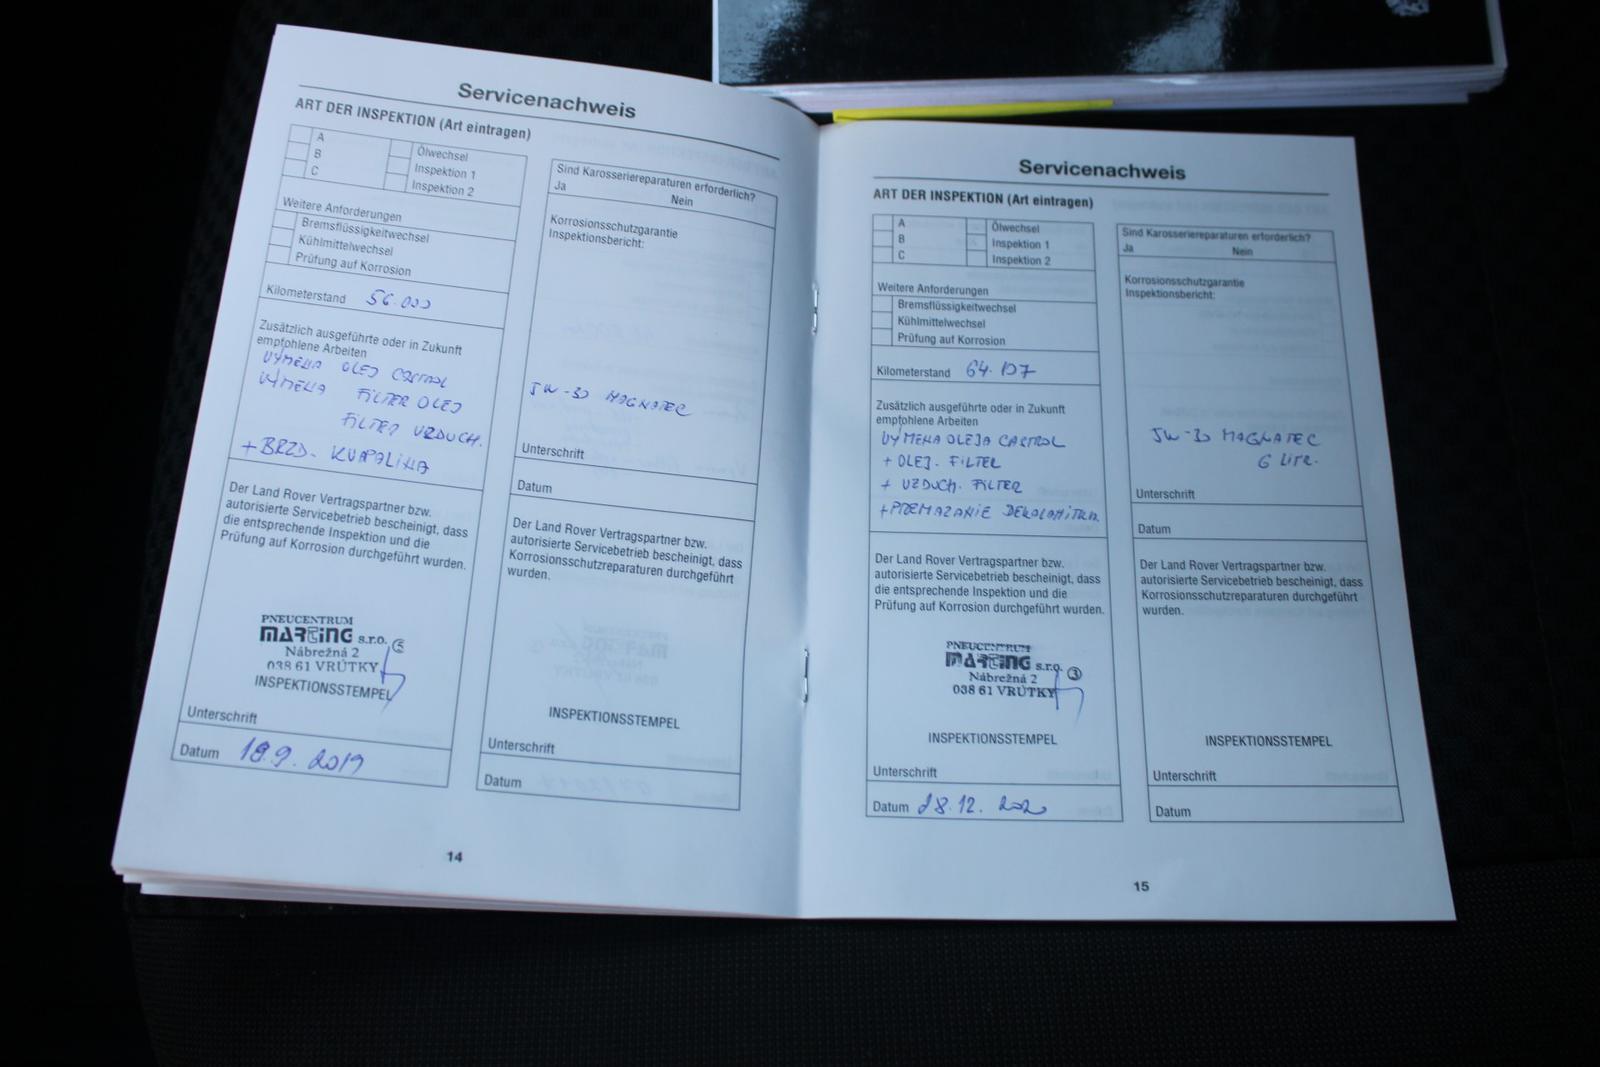 Servicenachweis
ART DER INSPEKTION (Art eintragen)
A
B
C
Ölwechsel
Inspektion 1
Inspektion 2
Weitere Anforderungen
Bremsflüssigkeitwechsel
Kühlmittelwechsel
Prüfung auf Korrosion
Kilometerstand 56.000
Zusätzlich ausgeführte oder in Zukunft
empfohlene Arbeiten
VÝMENA OLEJ CASTROL
VÝMENA FILTER OLEJ
FILTER VZDUCH.
+ BRZD. KVAPALINA
Der Land Rover Vertragspartner bzw.
autorisierte Servicebetrieb bescheinigt, dass
die entsprechende Inspektion und die
Prüfung auf Korrosion durchgeführt wurden.
PNEUCENTRUM
MARTING s.r.o. 5
Nábrežná 2
038 61 VRÚTKY
INSPEKTIONSSTEMPEL
Unterschrift
Datum 18.9.2019
Sind Karosseriereparaturen erforderlich?
Ja Nein
Korrosionsschutzgarantie
Inspektionsbericht:
5W-30 MAGNATEC
Unterschrift
Datum
Der Land Rover Vertragspartner bzw.
autorisierte Servicebetrieb bescheinigt, dass
Korrosionsschutzreparaturen durchgeführt
wurden.
INSPEKTIONSSTEMPEL
Unterschrift
Datum
14
Servicenachweis
ART DER INSPEKTION (Art eintragen)
A
B
C
Ölwechsel
Inspektion 1
Inspektion 2
Weitere Anforderungen
Bremsflüssigkeitwechsel
Kühlmittelwechsel
Prüfung auf Korrosion
Kilometerstand
Zusätzlich ausgeführte oder in Zukunft
empfohlene Arbeiten
VÝMENA OLEJA CASTROL
+ OLEJ. FILTER
+ VZDUCH. FILTER
+ PREMAZANIE
Der Land Rover Vertragspartner bzw.
autorisierte Servicebetrieb bescheinigt, dass
die entsprechende Inspektion und die
Prüfung auf Korrosion durchgeführt wurden.
PNEUCENTRUM
MARTING s.r.o. 3
Nábrežná 2
038 61 VRÚTKY
INSPEKTIONSSTEMPEL
Unterschrift
Datum 28.12.2020
Sind Karosseriereparaturen erforderlich?
Ja Nein
Korrosionsschutzgarantie
Inspektionsbericht:
5W-30 MAGNATEC
6 LITR.
Unterschrift
Datum
Der Land Rover Vertragspartner bzw.
autorisierte Servicebetrieb bescheinigt, dass
Korrosionsschutzreparaturen durchgeführt
wurden.
INSPEKTIONSSTEMPEL
Unterschrift
Datum
15